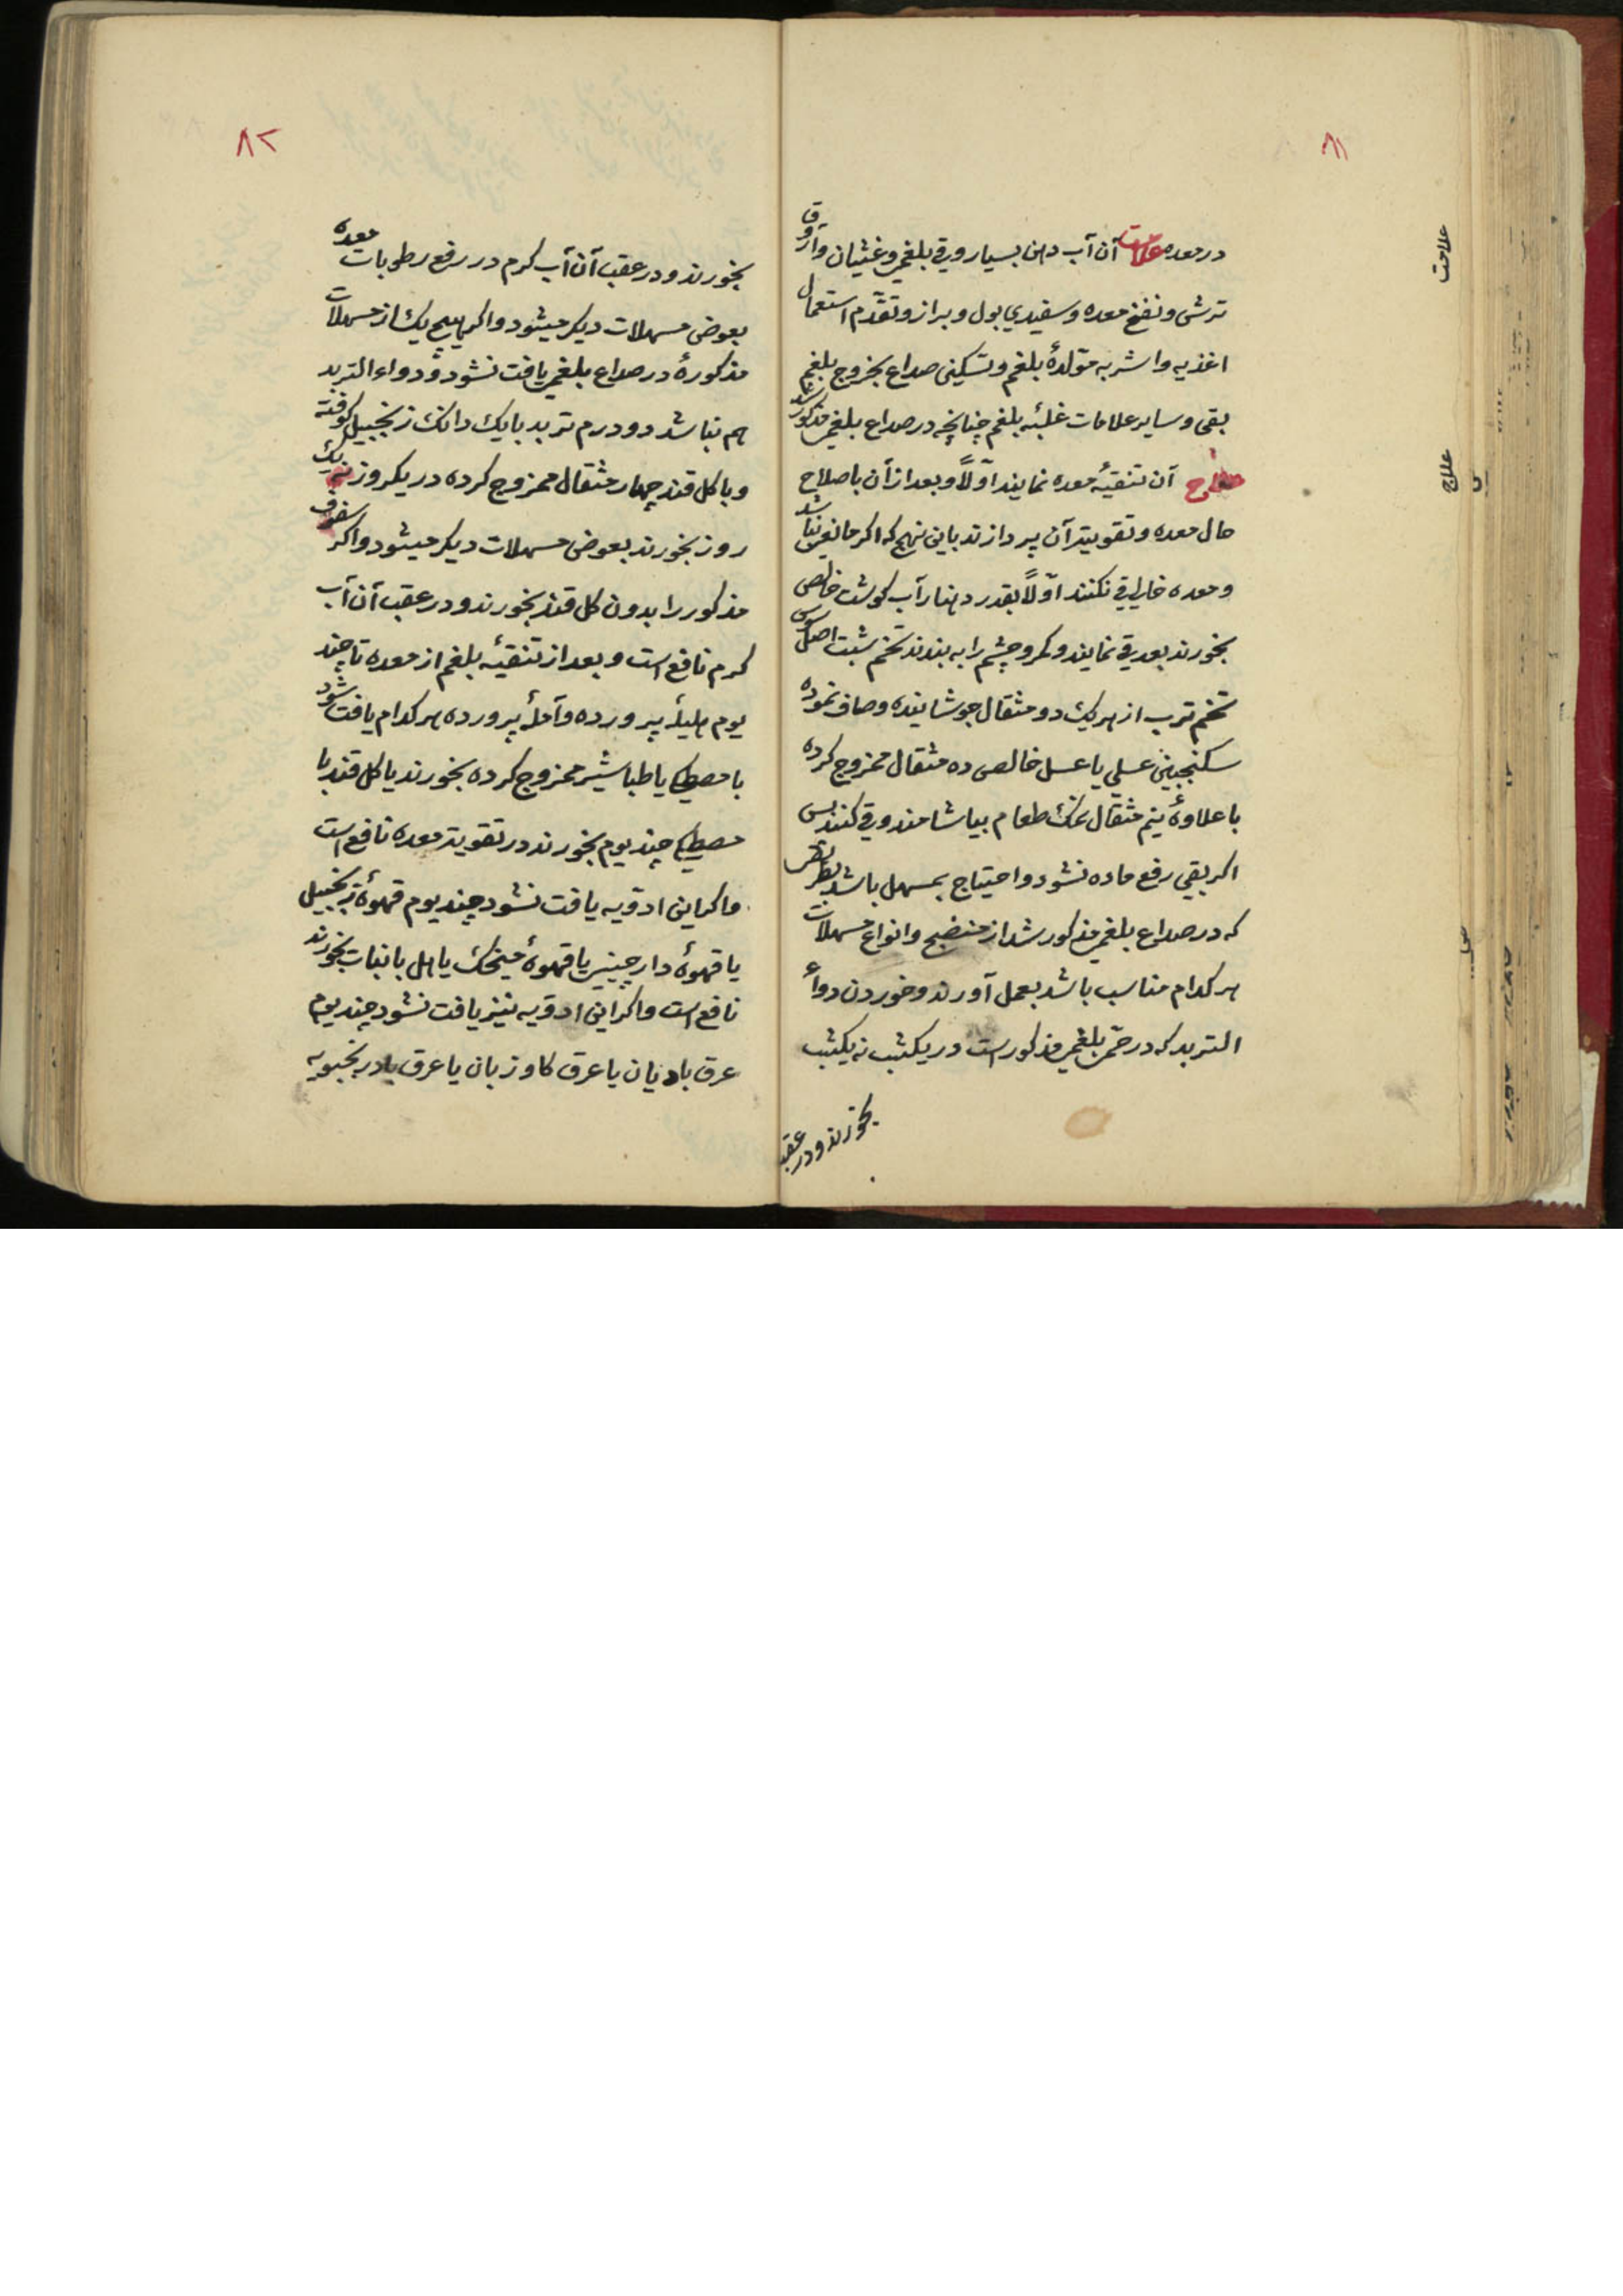 ۸۱
در معده علامت آن آب دهن بسیار و قی بلغمی و غثیان و آروق
ترشی و نفخ معده و سفیدی بول و براز و تقدّم استعمال
اغذیه و اشربه متولدهٔ بلغم و تسکین صداع بخروج بلغم
بقی و سایر علامات غلبهٔ بلغم چنانچه در صداع بلغمی مذکور شد
علاج آن تنقیهٔ معده نمایند اوّلاً و بعد از آن باصلاح
حال معده و تقویت آن پردازند باین نهج که اکر مانعی نباشد
و معده خالی قی نکنند اوّلاً بقدر دهنار آب کوشت خالص
بخورند بعد قی نمایند و کمر و چشم را به بندند تخم شبت اصل سوس
تخم ترب از هر یک دو مثقال جوشانیده و صاف نموده
سکنجبین عسلی یا عسل خالص ده مثقال ممزوج کرده
با علاوهٔ نیم مثقال نمک طعام بیاشامند و قی کنند پس
اکر بقی رفع ماده نشود و احتیاج بمسهل باشد بطریق
که در صداع بلغمی مذکور شد از منضج و انواع مسهلات
هر کدام مناسب باشد بعمل آورند و خوردن دواء
التربد که در حمّی بلغمی مذکور است در یکشب نه یکشب
بخورند و در عقب
علامت
علاج
۸۲
بخورند و در عقب آن آب کرم در رفع رطوبات معده
بعوض مسهلات دیکر میشود و اکر هیچ یک از مسهلات
مذکورهٔ در صداع بلغمی یافت نشود و دواء التربد
هم نباشد دو درم تربد با یک دانک زنجبیل کوفته
و با کل قند چهار مثقال ممزوج کرده در یکروز نه یک
روز بخورند بعوض مسهلات دیکر میشود و اکر سفوف
مذکور را بدون کل قند بخورند و در عقب آن آب
کرم نافع است و بعد از تنقیهٔ بلغم از معده تا چند
یوم هلیلهٔ پرورده و آملهٔ پرورده هر کدام یافت شود
با مصطکی یا طباشیر ممزوج کرده بخورند یا کل قند با
مصطکی چند یوم بخورند در تقویت معده نافع است
و اکر این ادویه یافت نشود چند یوم قهوهٔ زنجبیل
یا قهوهٔ دارچینی یا قهوهٔ میخک یا هل با نبات بخورند
نافع است و اکر این ادویه نیز یافت نشود چند یوم
عرق بادیان یا عرق کاوزبان یا عرق بادرنجبویه